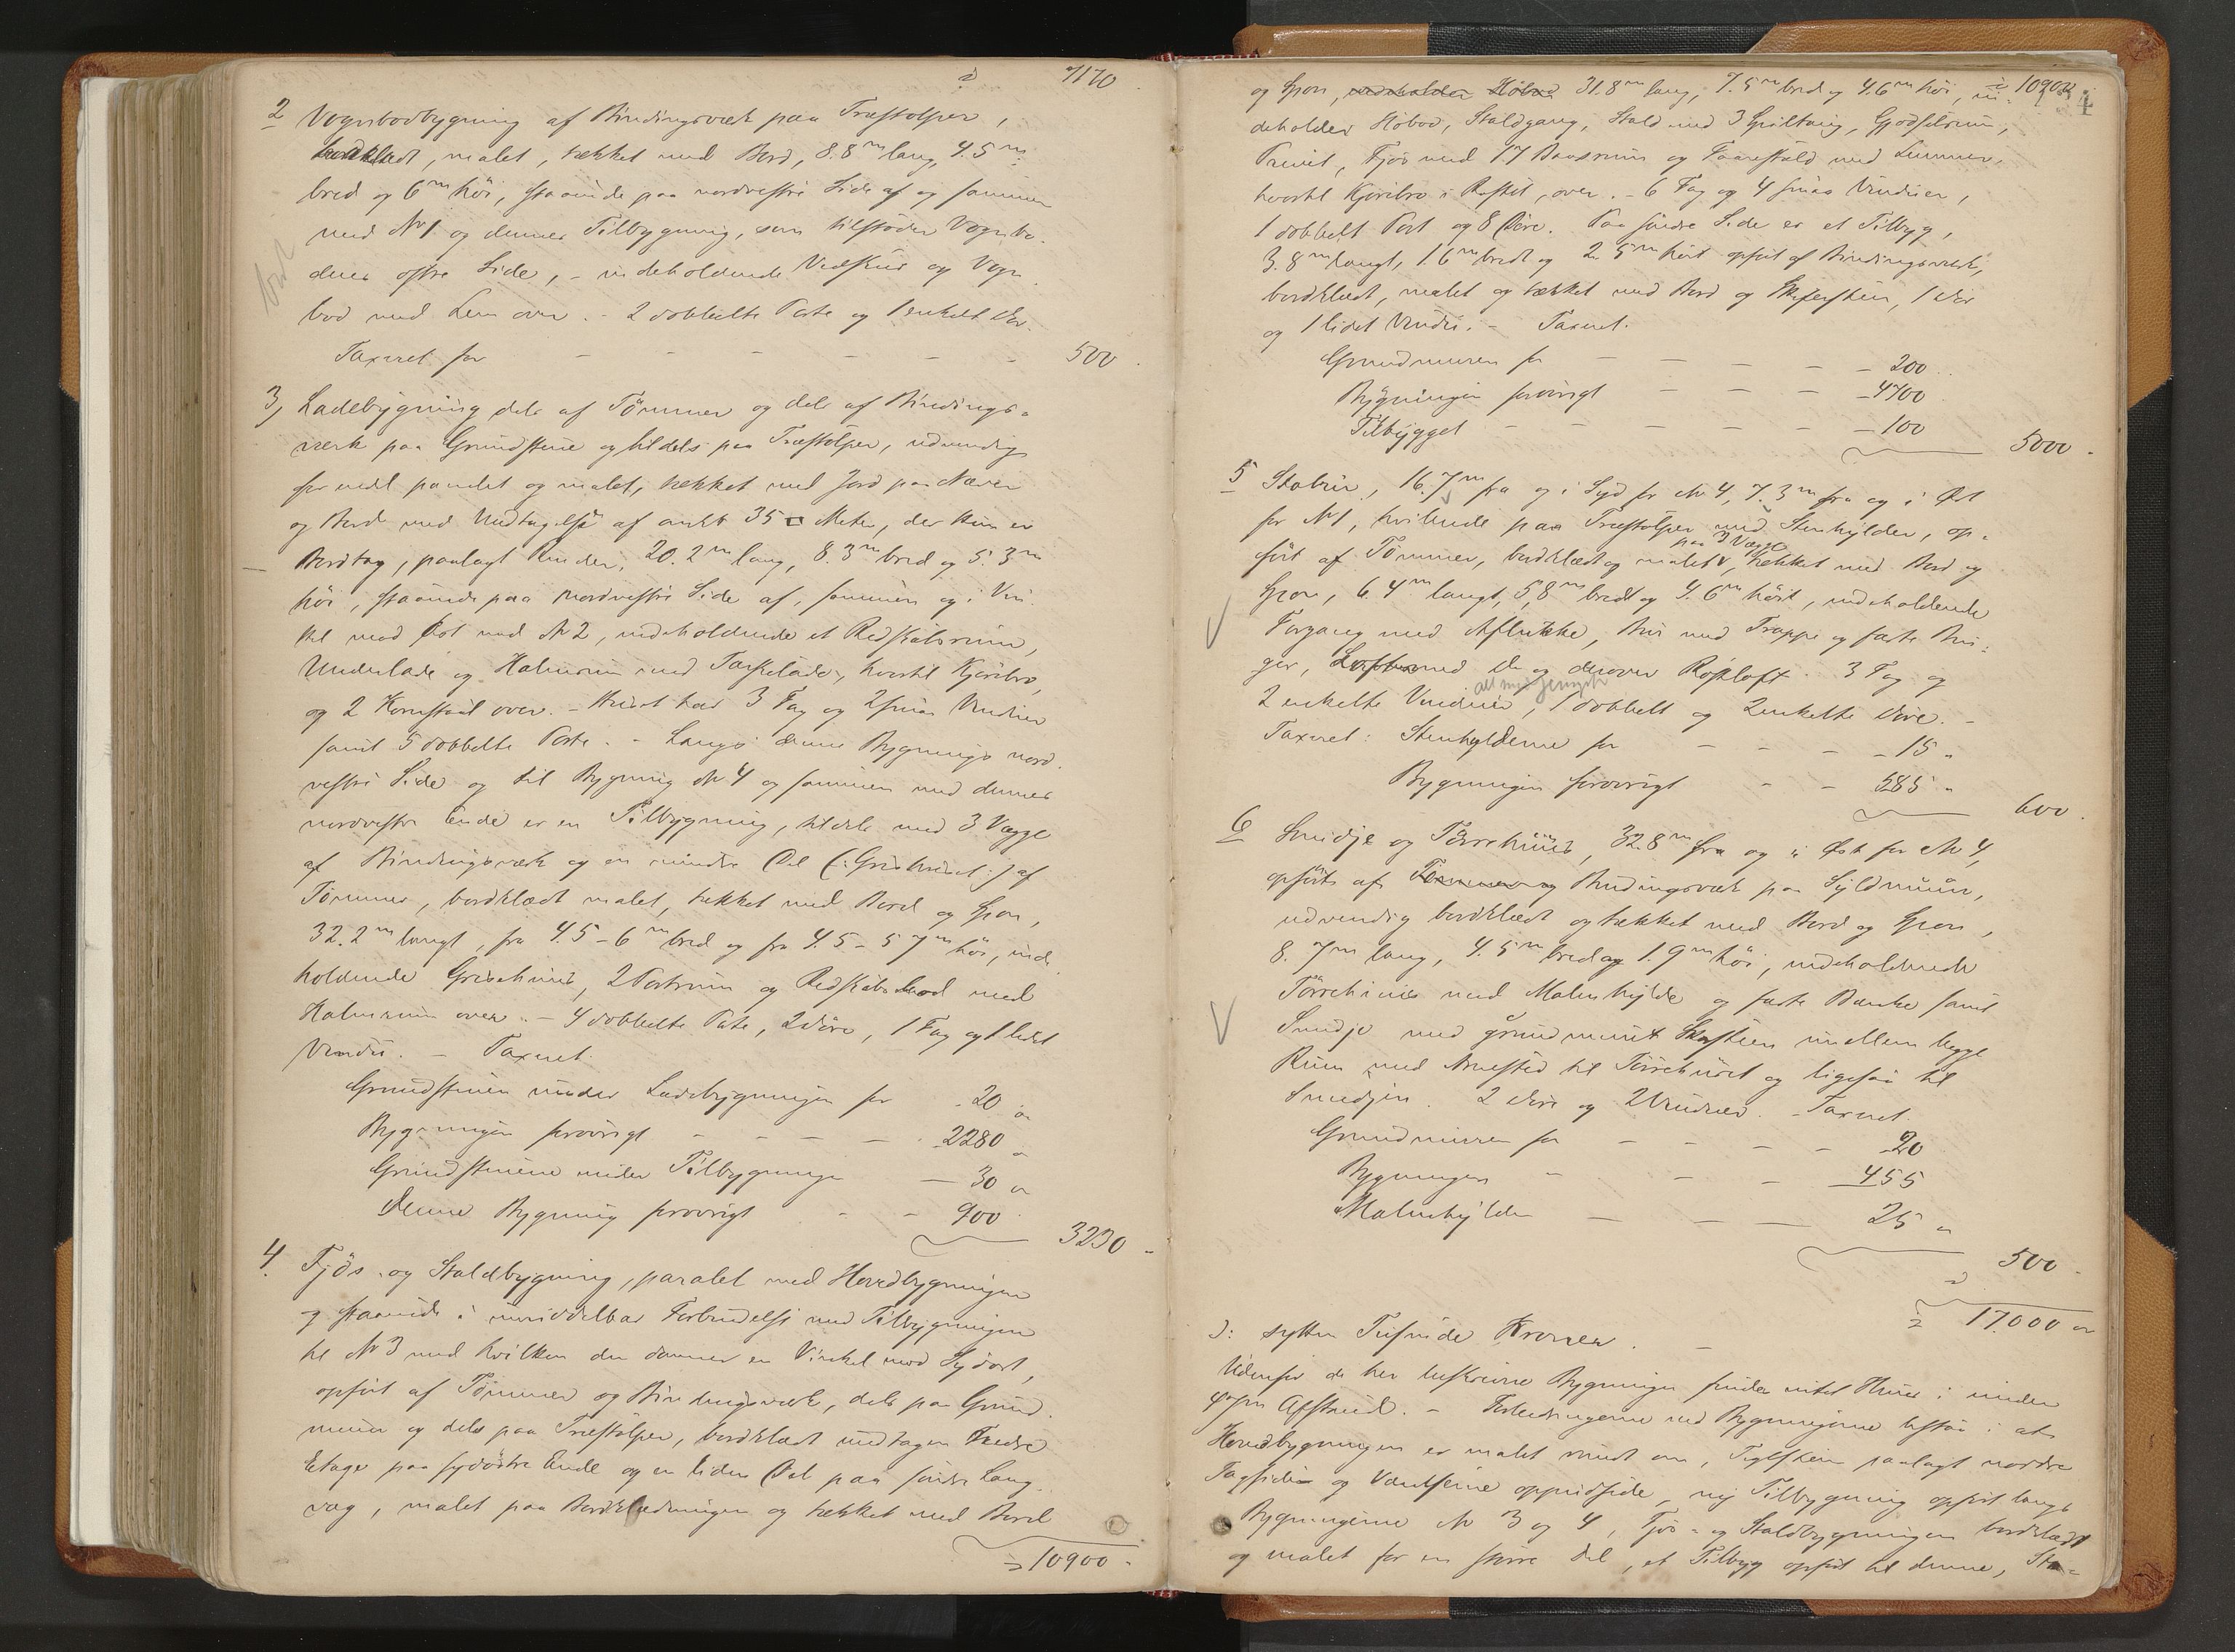 7170
2 Vognbodbygning af Bindingsværk paa Træstolper,
bordklædt, malet, tækket med Bord, 8.8 m lang, 4.5 m
bred og 6 m høi, staaende paa nordvestre Side af og sammen
med № 1 og dennes Tilbygning, som tilstøder Vognbo-
dens østre Side, - indeholdende Vedskur og Vogn
bod med Lem over. - 2 dobbelte Porte og 1 enkelt Dør.
Taxeret for - - - - - - 500.
3, Ladebygning dels af Tömmer og dels af Bindings-
værk paa Grundstene og tildels paa Træstolper, udvendig
panelet og malet, tækket med Jord paa Næver
og Bord med Undtagelse af omkr 35 □ Meter, der kun er
Bordtag, paalagt Render, 20.2 m lang, 8.3 m bred og 5.3 m
høi, staaende paa nordvestre Side af, sammen og i Vin
kel mod Øst med № 2, indeholdende et Redskabsrum,
Underlade og Halmrum med Tærskelade, hvortil Kjørebro,
og 2 Kornstaal over. - Huset har 3 Fag og 2 smaa Vinduer
samt 5 dobbelte Porte. - Langs denne Bygnings nord
vestre Side og til Bygning № 4 og sammen med dennes
nordvestre Ende er en Tilbygning, tildels med 3 Vægge
af Bindingsværk og en mindre Del (: Grisehuset :) af
Tömmer, bordklædt malet, tækket med Bord og Spon,
32.2 m langt, fra 4.5 - 6 m bred og fra 4.5 - 5.7 m høi, inde
holdende Grisehus, 2 Portrum og Redskabsbod med
Halmrum over. - 4 dobbelte Porte, 2 Döre, 1 Fag og 1 lidet
Vindu. - Taxeret.
Grundstenen under Ladebygningen for - 20 "
Bygningen forøvrigt - - - - - 2280 "
Grundstenene under Tilbygningen - 30 "
Denne Bygning forøvrigt - - 900
3230 -
4. Fjös- og Staldbygning, paralel med Hovedbygningen
og staaende i umiddelbar Forbindelse med Tilbygningen
til № 3 med hvilken den danner en Vinkel mod Sydost,
opført af Tömmer og Bindingsværk, dels paa Grund
mur og dels paa Træstolper, bordklædt undtagen Nedre
Etage paa sydöstre Ende og en liden Del paa søndre Lang
væg, malet paa Bordklædningen og tækket med Bord
10900 -
10900
og Spon, indeholder Høbod 31.8 m lang, 7.5 m bred og 4.6 m høi, in-
deholder Høbod, Staldgang, Stald med 3 Spiltaug, Gjødselrum,
Privet, Fjös med 17 Baasrum og Faarestald med Lemmer,
hvortil Kjørebro i Røstet, over. - 6 Fag og 4 smaa Vinduer,
1 dobbelt Port og 8 Döre. Paa søndre Side er et Tilbyg,
3.8 m langt, 1.6 m bredt og 2.5 m høit opført af Bindingsværk,
bordklædt, malet og tækket med Bord og Skifersten, 1 Dør
og 1 lidet Vindu. - Taxeret.
Grundmuren for - - - - - 200.
Bygningen forøvrigt - - - - 4700
Tilbygget - - - - - - 100
5000 -
5 Stabur, 16.7 m fra og i Syd for № 4, 7.3 m fra og i Øst
for № 1, hvilende paa Træstolper med Stenhylder, op-
ført af Tömmer, bordklædt og malet paa 3 Vægge, tækket med Bord og
Spon, 6.4 m langt, 5,8 m bredt og 4.6 m høit, indeholdende
Forgang med Aflukke, Bur med Trappe og faste Bin-
ger, Loft med Do og derover Røstloft. 3 Fag og
2 enkelte Vinduer, 1 dobbelt og 2 enkelte Döre. -
Taxeret: Stenhylderne for - - - - 15 "
Bygningen forøvrigt - - 585 "
600.
6 Smidje og Törrehuus, 32.8 m fra og i Øst for № 4,
opført af Tömmer og Bindingsværk paa Syldmuur,
udvendig bordklædt og tækket med Bord og Spon,
8.7 m lang, 4.5 m bred og 1.9 m høi, indeholdende
Törrehuus med Malmhylde og faste Bænke samt
Smidje med grundmuret Skorsten imellem begge
Rum med Arnested til Törrehuset og ligesaa til
Smidjen. 2 Döre og 2 Vinduer. - Taxeret
Grundmuren for - - - - 20
Bygningen - - - 455
Malmhylden - - - 25 "
500 -
17.000 "
ɔ: sytten Tusinde Kroner. -
Udenfor de her beskrevne Bygninger findes intet Huus i mindre
Afstand. - Forbedringerne ved Bygningerne bestaa i at
Hovedbygningen er malet rundt om, Teglsten paalagt nordre
Tagside og oppudsede, ny Tilbygning opført langs
Bygningerne № 3 og 4, Fjøs- og Staldbygningen bordklædt
og malet for en større Del, et Tilbyg opført til denne, Sta-